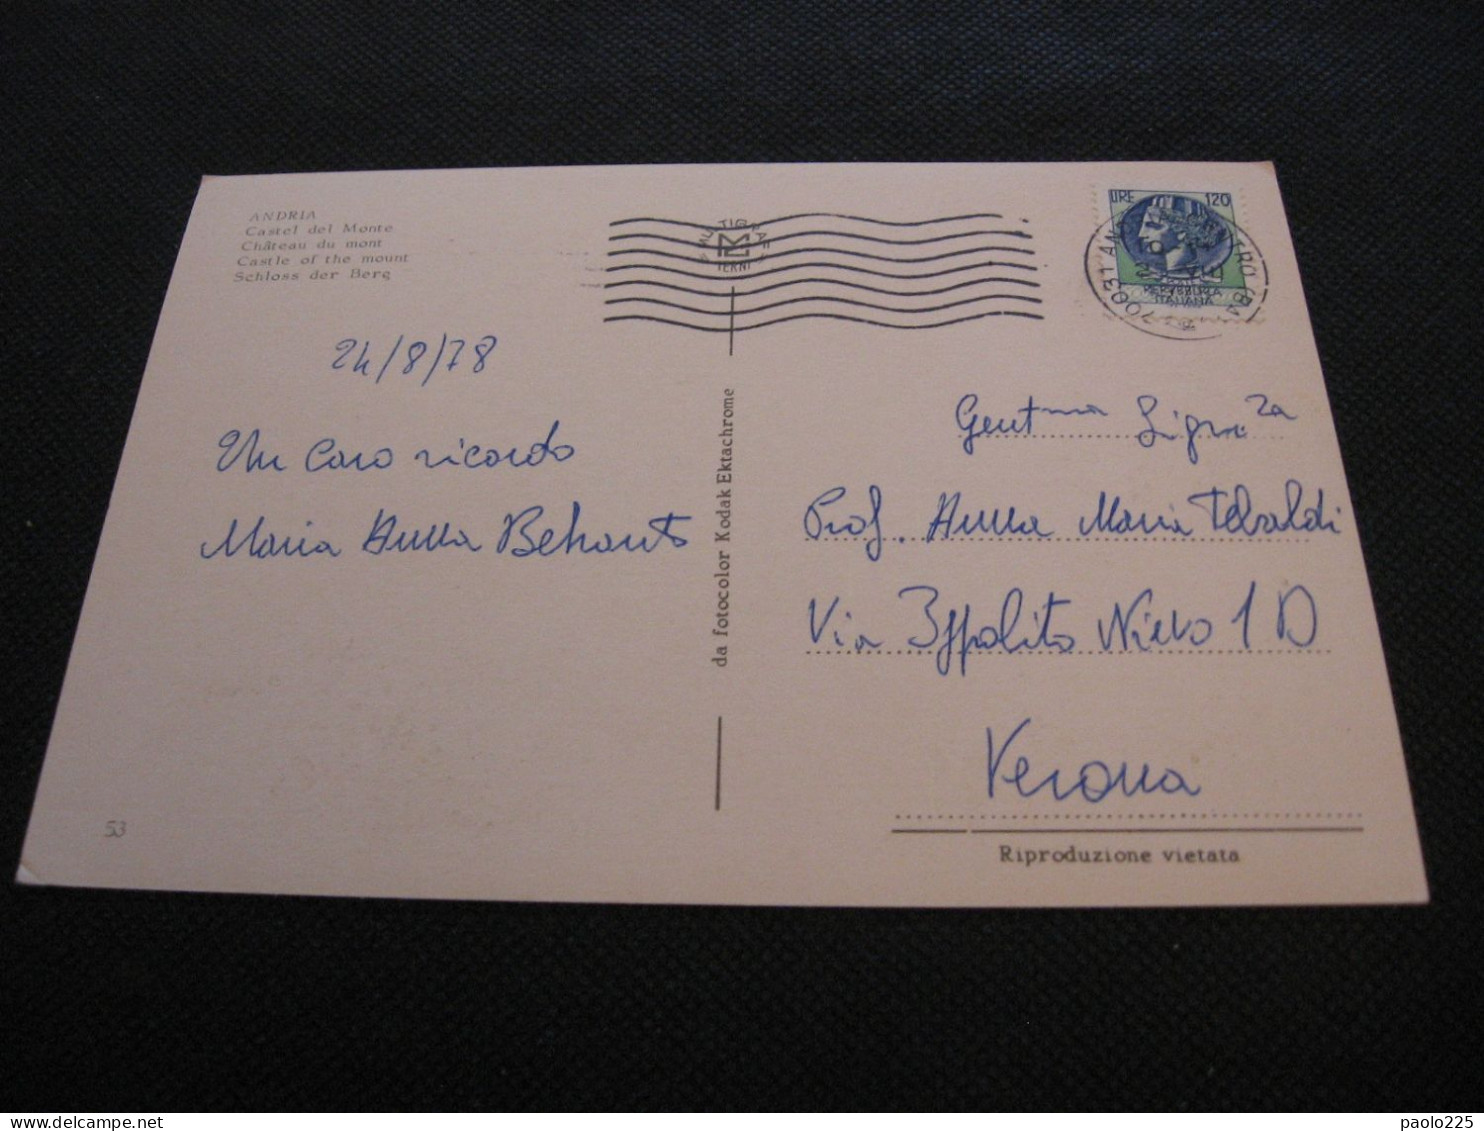 ANDRIA
Castel del Monte
Château du mont
Castle of the mount
Schloss der Berg
24/8/78
Un caro ricordo
Maria Anna
53
da fotocolor Kodak Ektachrome
MULTIGRAF
TERNI
LIRE 120
REPVBBLICA
ITALIANA
70031
Gent.ma Sig.na
Prof. Anna Maria Tebaldi
Via Ippolito Nievo 1 D
Verona
Riproduzione vietata
paolo225
delcampe.net